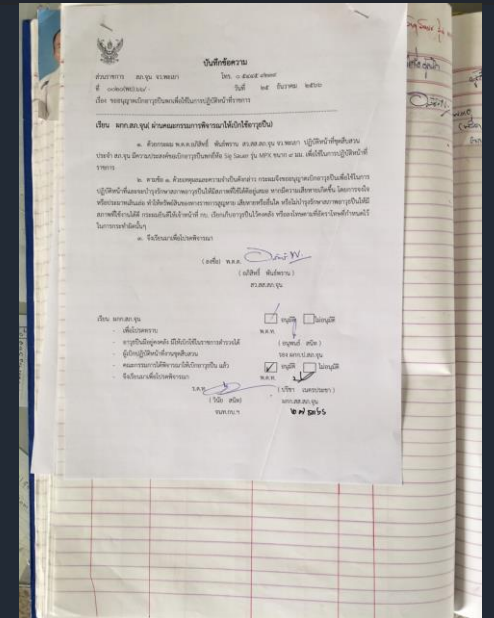 บันทึกข้อความ
ส่วนราชการ สภ.จุน จว.พะเยา โทร.
ที่ วันที่ ๒๕ ธันวาคม ๒๕๖๖
เรื่อง ขออนุญาตเบิกอาวุธปืนพกเพื่อใช้ในการปฏิบัติหน้าที่ราชการ
เรียน ผกก.สภ.จุน( ผ่านคณะกรรมการพิจารณาให้เบิกใช้อาวุธปืน)
๑. ด้วยกระผม พ.ต.ต.อภิสิทธิ์ พันธ์พราน สว.สส.สภ.จุน จว.พะเยา ปฏิบัติหน้าที่ชุดสืบสวน
ประจำ สภ.จุน มีความประสงค์ขอเบิกอาวุธปืนพกยี่ห้อ Sig Sauer รุ่น MPX ขนาด ๙ มม. เพื่อใช้ในการปฏิบัติหน้าที่
ราชการ
๒. ตามข้อ ๑. ด้วยเหตุผลและความจำเป็นดังกล่าว กระผมจึงขออนุญาตเบิกอาวุธปืนเพื่อใช้ในการ
ปฏิบัติหน้าที่และจะบำรุงรักษาสภาพอาวุธปืนให้มีสภาพที่ใช้ได้ดีอยู่เสมอ หากมีความเสียหายเกิดขึ้น โดยการจงใจ
หรือประมาทเลินเล่อ ทำให้ทรัพย์สินของทางราชการสูญหาย เสียหายหรือสิ้นใด หรือไม่บำรุงรักษาสภาพอาวุธปืนให้มี
สภาพที่ใช้งานได้ดี กระผมยินดีให้เจ้าหน้าที่ กบ. เรียกเก็บอาวุธปืนไว้คงคลัง หรือลงโทษตามที่อัตราโทษที่กำหนดไว้
ในการกระทำผิดนั้นๆ
๓. จึงเรียนมาเพื่อโปรดพิจารณา
( ลงชื่อ) พ.ต.ต.
( อภิสิทธิ์ พันธ์พราน )
สว.สส.สภ.จุน
เรียน ผกก.สภ.จุน อนุมัติ ไม่อนุมัติ
- เพื่อโปรดทราบ พ.ต.ท.
- อาวุธปืนมีอยู่คงคลัง มีให้เบิกใช้ในราชการตำรวจได้ ( อนุพนธ์ สนิท )
- ผู้เบิกปฏิบัติหน้าที่งานชุดสืบสวน รอง ผกก.ป.สภ.จุน
- คณะกรรมการได้พิจารณาให้เบิกอาวุธปืน แล้ว อนุมัติ ไม่อนุมัติ
- จึงเรียนมาเพื่อโปรดพิจารณา พ.ต.อ.
ร.ต.ต. ( ปรีชา เนตรประชา )
( วินัย สนิท) ผกก.สภ.จุน
จนท.กบ ฯ